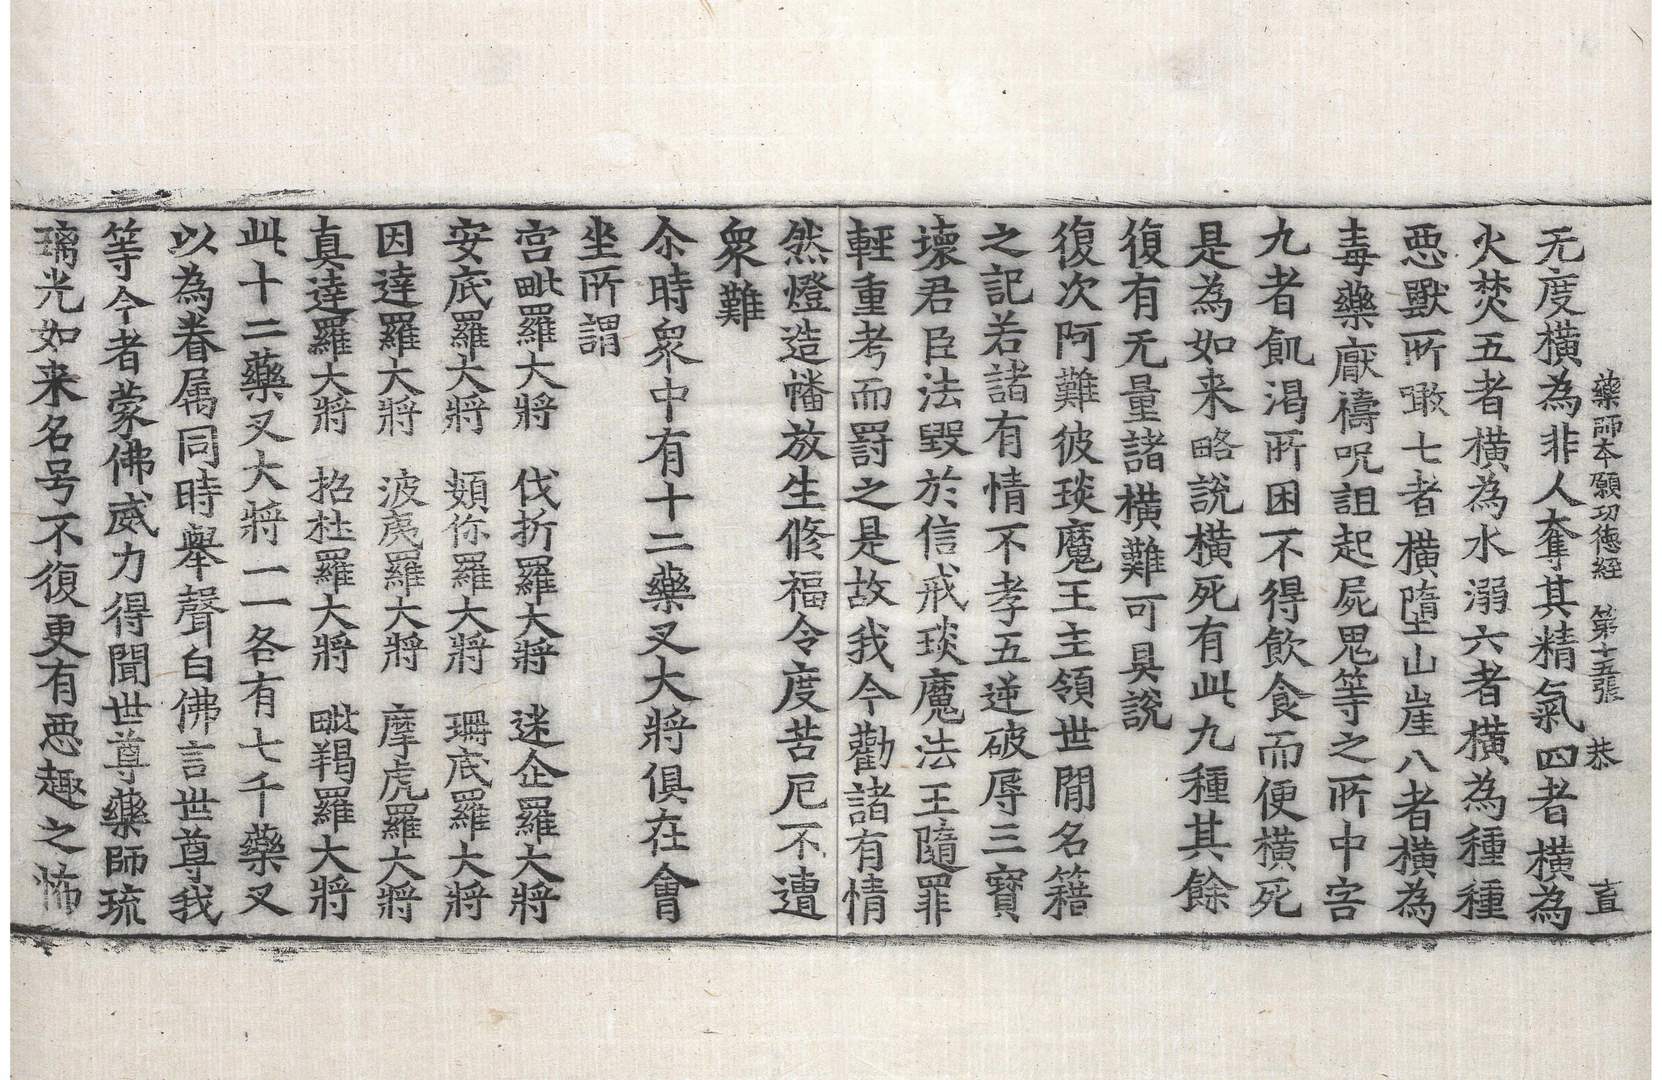 藥師本願功德経　第十五張　恭　直
无度橫為非人奪其精氣四者橫為
火焚五者橫為水溺六者橫為種種
惡獸所噉七者橫墮山崖八者橫為
毒藥厭禱呪詛起屍鬼等之所中害
九者飢渴所困不得飲食而便橫死
是為如来略說橫死有此九種其餘
復有无量諸橫難可具說
復次阿難彼琰魔王主領世間名籍
之記若諸有情不孝五逆破辱三寶
壞君臣法毀於信戒琰魔法王隨罪
輕重考而罰之是故我今勸諸有情
然燈造幡放生修福令度苦厄不遭
眾難
尒時眾中有十二藥叉大將俱在會
坐所謂
宮毗羅大將　伐折羅大將　迷企羅大將
安底羅大將　頞你羅大將　珊底羅大將
因達羅大將　波夷羅大將　摩虎羅大將
真達羅大將　招杜羅大將　毗羯羅大將
此十二藥叉大將一一各有七千藥叉
以為眷属同時舉聲白佛言世尊我
等今者蒙佛威力得聞世尊藥師琉
璃光如来名号不復更有惡趣之怖